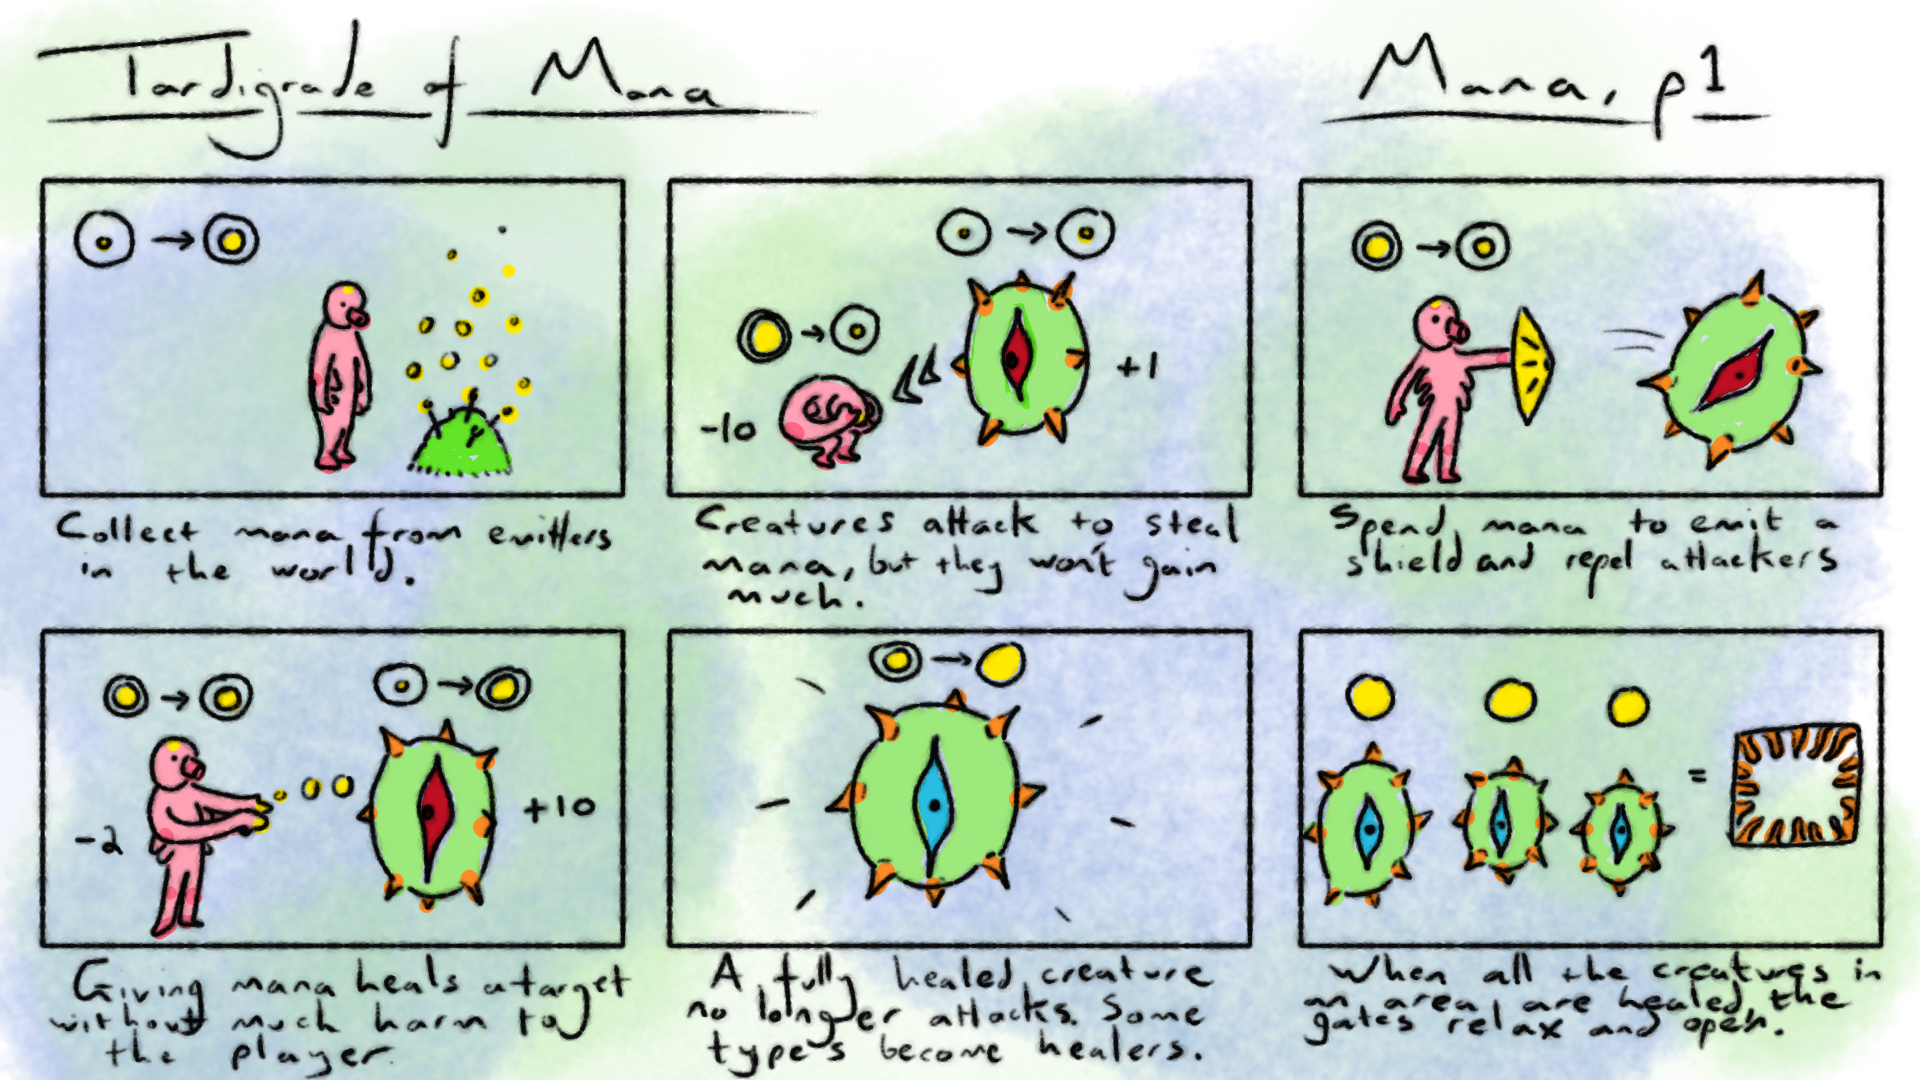 Tardigrade of Mana
Mana, p1
Collect mana from emitters
in the world.
-10
+1
Creatures attack to steal
mana, but they won't gain
much.
Spend mana to emit a
shield and repel attackers
-2
+10
Giving mana heals a target
without much harm to
the player.
A fully healed creature
no longer attacks. Some
types become healers.
=
When all the creatures in
an area are healed, the
gates relax and open.